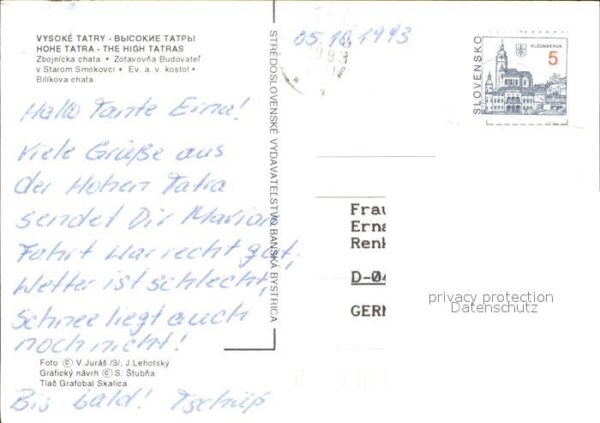 VYSOKÉ TATRY - ВЫСОКИЕ ТАТРЫ
HOHE TATRA - THE HIGH TATRAS
Zbojnícka chata • Zotavovňa Budovateľ
v Starom Smokovci • Ev. a. v. kostol •
Bilíkova chata
Hallo Tante Erna!
Viele Grüße aus
der Hohen Tatra
sendet Dir Marion
Fahrt war recht gut,
Wetter ist schlecht,
Schnee liegt auch
noch nicht!
Foto © V. Juráš /3/, J. Lehotský
Grafický návrh © S. Štubňa
Tlač Grafobal Skalica
Bis bald! Tschüß
STREDOSLOVENSKÉ VYDAVATEĽSTVO BANSKÁ BYSTRICA
05.10.1993
SLOVENSKO
RUŽOMBEROK
5
Frau
Erna
Renk
D-04
GERM
privacy protection
Datenschutz